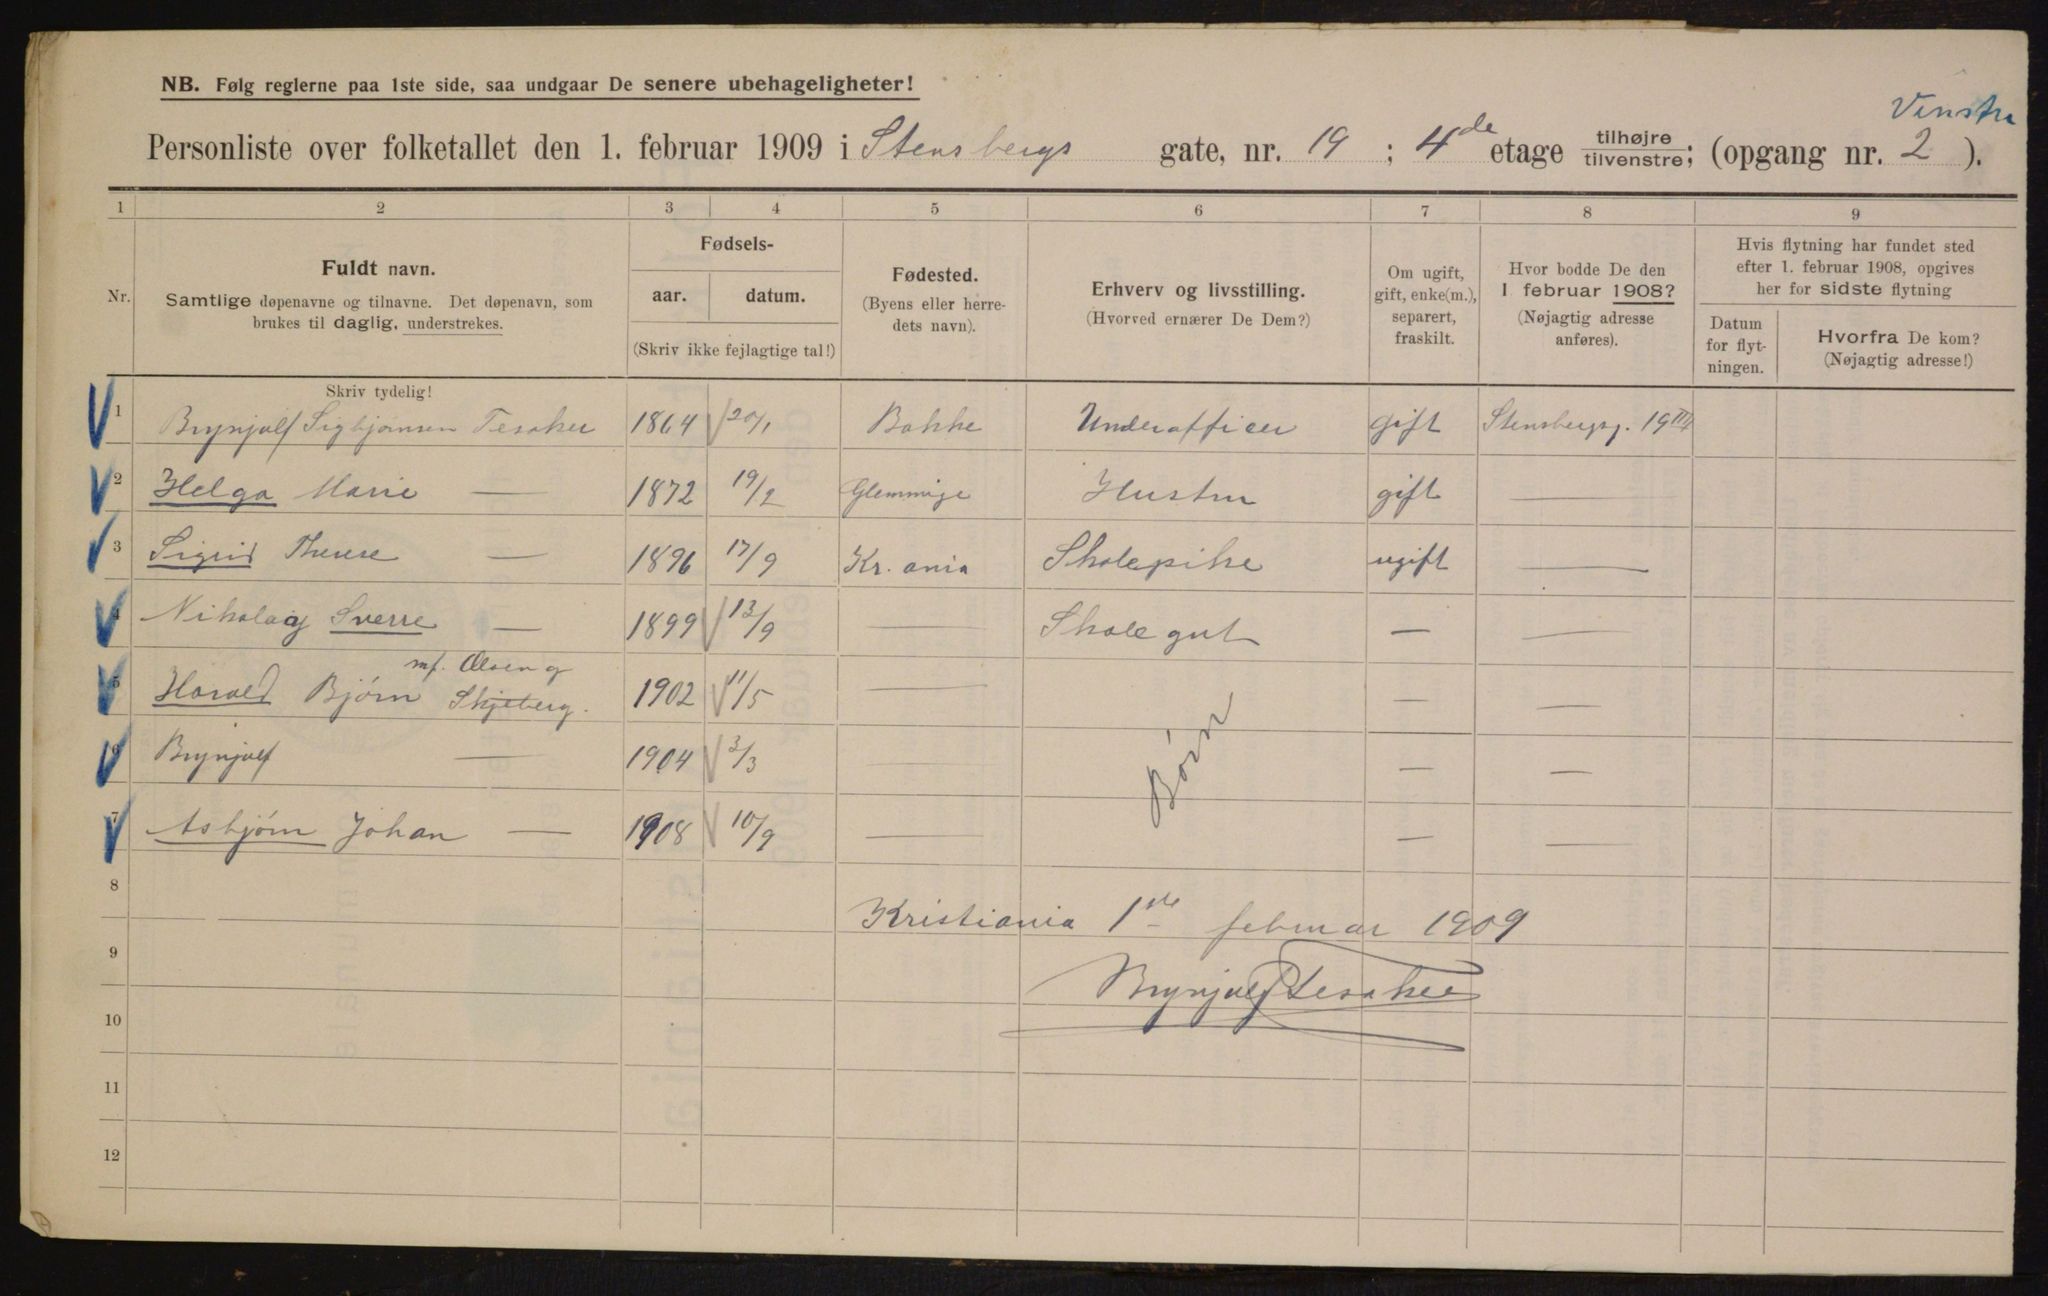 NB. Følg reglerne paa 1ste side, saa undgaar De senere ubehageligheter!
Vinstre
Personliste over folketallet den 1. februar 1909 i Stensbergs gate, nr. 19 ; 4de etage tilhøjre/tilvenstre; (opgang nr. 2 ).
1 2 3 4 5 6 7 8 9
Nr.
Fuldt navn.
Samtlige døpenavne og tilnavne. Det døpenavn, som
brukes til daglig, understrekes.
Skriv tydelig!
Fødsels-
aar. datum.
(Skriv ikke fejlagtige tal!)
Fødested.
(Byens eller herre-
dets navn).
Erhverv og livsstilling.
(Hvorved ernærer De Dem?)
Om ugift,
gift, enke(m.),
separert,
fraskilt.
Hvor bodde De den
1 februar 1908?
(Nøjagtig adresse
anføres).
Hvis flytning har fundet sted
efter 1. februar 1908, opgives
her for sidste flytning
Datum
for flyt-
ningen.
Hvorfra De kom?
(Nøjagtig adresse!)
1 Brynjulf Sigbjørnsen Tesaker 1864 20/1 Bakke Underofficer gift Stensbergsg. 19 III
2 Helga Marie — 1872 19/2 Glemminge Hustru gift —
3 Sigrid Therese — 1896 17/9 Kr.ania Skolepike ugift —
4 Nikolaij Sverre — 1899 13/9 — Skolegut — —
5 Harald Bjørn Skjeberg. 1902 11/5 — — —
6 Brynjulf — 1904 3/3 — Børn — —
7 Asbjørn Johan — 1908 10/9 — — —
8
Kristiania 1ste februar 1909
9
Brynjulf Tesaker
10
11
12